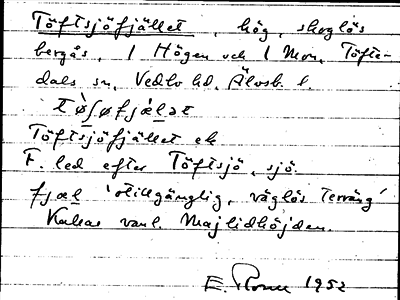 Töftsjöfjället, hög, skoglös
bergås, 1 Högen och 1 Mon, Töfte-
dals sn, Vedbo hd, Älvsb. l.
tø̀ʃøfjæ̀lət
Töftsjöfjället ek
F. led efter Töftsjö, sjö.
fjæl 'otillgänglig, väglös terräng'
Kallas vanl. Majlidhöjden.
E. 1952